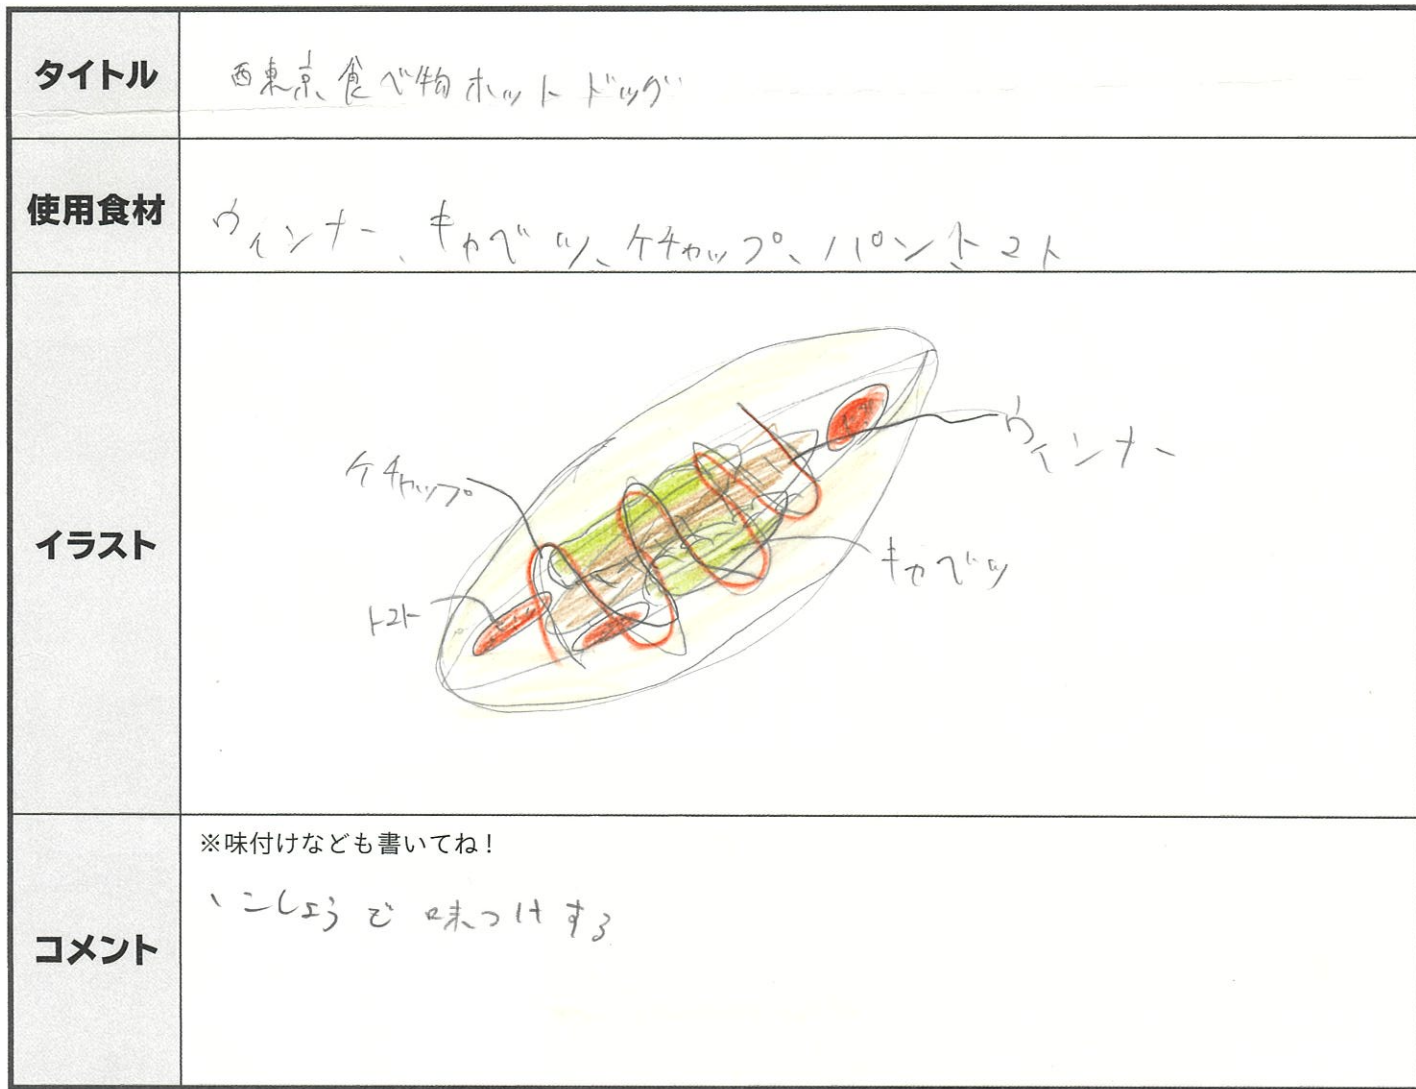 タイトル
西東京食べ物ホットドッグ
使用食材
ウィンナー、キャベツ、ケチャップ、パン、トマト
イラスト
ケチャップ
ウィンナー
トマト
キャベツ
コメント
※味付けなども書いてね!
、こしょうで味つけする